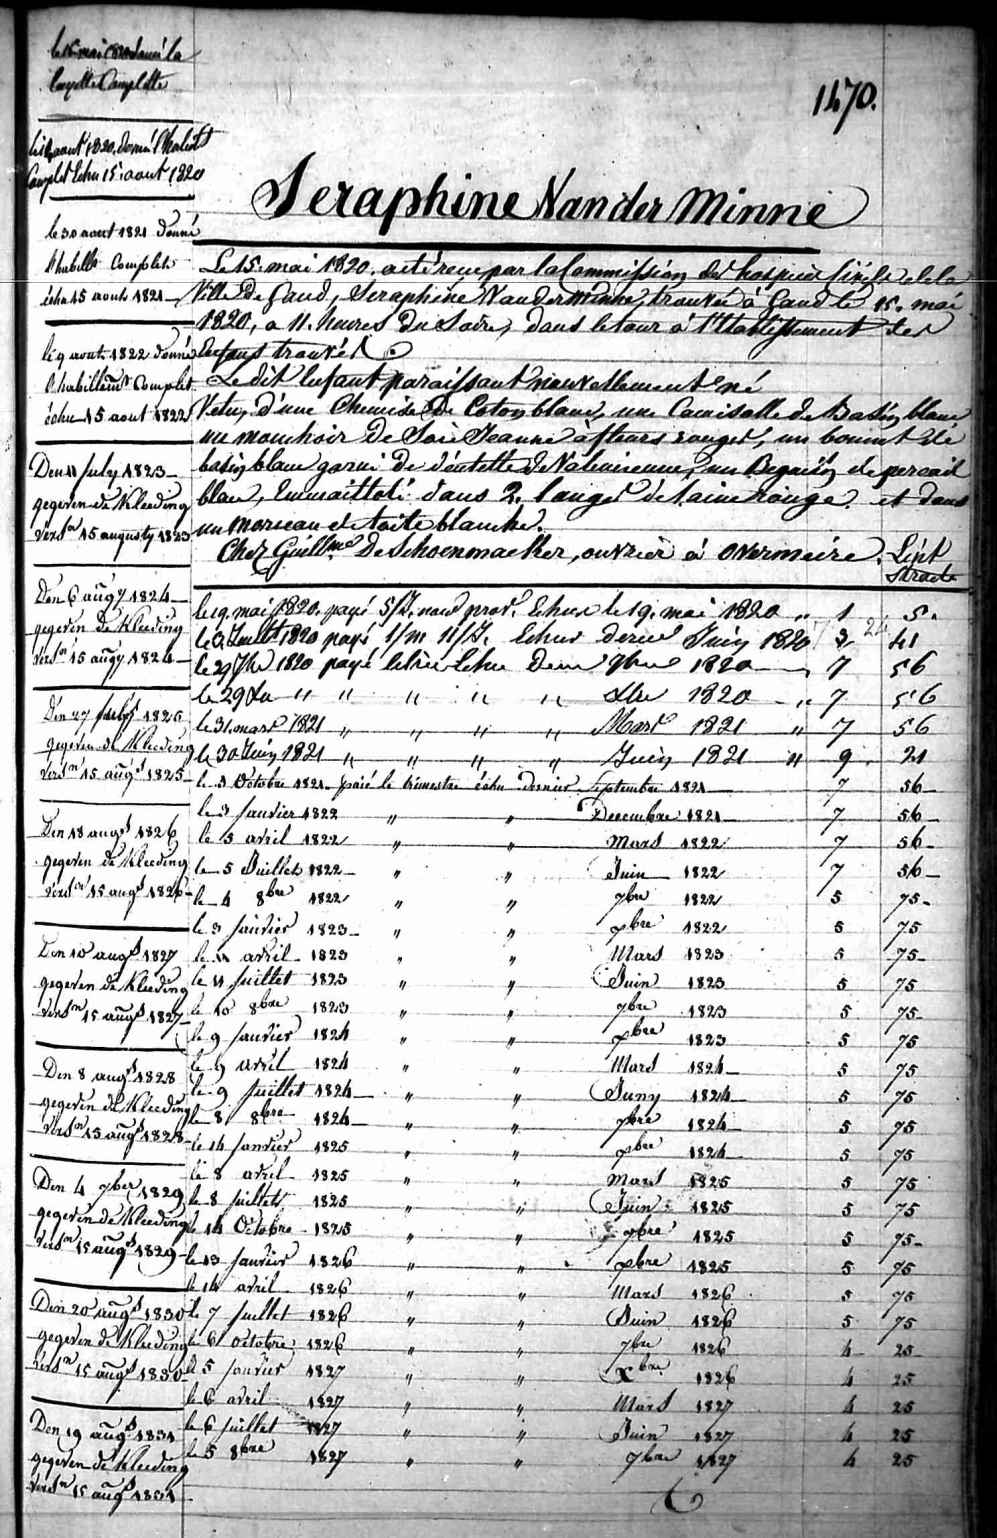 1470.
Seraphine Van der Minne
Le 15. mai 1820. a été reçu par la Commission des hospices Civils de la
Ville de Gand, Seraphine Van der Minne, trouvée à Gand le 15. mai
1820, a 11. heures du Soir, dans le tour à l'Etablissement des
Enfans trouvés
Le dit Enfant paraissant nouvellement né
Vetu, d'une Chemise de Coton blanc, une Camisolle de Basin blanc
un mouchoir de Soie Jeaune à fleurs rouges, un bonnet de
basin blanc garni de dentelle de Valencienne, un Beguin de percail
blanc, Emmailloté dans 2. langes de laine rouge et dans
un morceau de toile blanche.
Chez Guillme De Schoenmaeker, ouvrier à Overmeire.
le 15 mai 1820 donné la
layette Complette
le aout 1820. donné l'habillt
Complet Echu 15 aout 1820
le 30 aout 1821 donné
l'habillt Complet
échu 15 aout 1821
le 9 aout 1822 donné
l'habillemt Complet
échu 15 aout 1822
Den 11 july 1823
gegeven de Kleeding
versn 15 augusty 1823
Den 6 augy 1824
gegeven de Kleeding
versn 15 augy 1824
Den 27 1826
gegeven de Kleeding
versn 15 augs 1825
Den 18 augs 1826
gegeven de Kleeding
versn 15 augs 1826
Den 10 augs 1827
gegeven de Kleeding
versn 15 augs 1827
Den 8 augs 1828
gegeven de Kleeding
versn 15 augs 1828
Den 4 7ber 1829
gegeven de Kleeding
versn 15 augs 1829
Den 20 augs 1830
gegeven de Kleeding
versn 15 augs 1830
Den 19 augs 1831
gegeven de Kleeding
versn 15 augs 1831
le 19. mai 1820. payé Echue le 19. mai 1820 " 1 5.
le 1820 payé Echus Juin 1820 3 41
le 29 7bre 1820 payé Echu 7bre 1820 7 56
le 29 Xbre " " " " " Xbre 1820 " 7 56
le 31 mars 1821 " " " " " Mars 1821 " 7 56
le 30 Juin 1821 " " " " " Juin 1821 " 9 21
le 3 Octobre 1821 paié le trimestre échu dernier Septembre 1821 7 56
le 3 janvier 1822 " " Decembre 1821 7 56
le 5 avril 1822 " " Mars 1822 7 56
le 5 Juillet 1822 " " Juin 1822 7 56
le 4 8bre 1822 " " 7bre 1822 5 75
le 3 janvier 1823 " " xbre 1822 5 75
le 11 avril 1823 " " Mars 1823 5 75
le 11 juillet 1823 " " Juin 1823 5 75
le 10 8bre 1823 " " 7bre 1823 5 75
le 9 janvier 1824 " " xbre 1823 5 75
le 9 avril 1824 " " Mars 1824 5 75
le 9 juillet 1824 " " Juny 1824 5 75
le 8 8bre 1824 " " 7bre 1824 5 75
le 14 janvier 1825 " " xbre 1824 5 75
le 8 avril 1825 " " mars 1825 5 75
le 8 juillet 1825 " " Juin 1825 5 75
le 14 Octobre 1825 " " 7bre 1825 5 75
le 13 janvier 1826 " " xbre 1825 5 75
le 14 avril 1826 " " Mars 1826 5 75
le 7 juillet 1826 " " Juin 1826 5 75
le 6 octobre 1826 " " 7bre 1826 4 25
le 5 janvier 1827 " " Xbre 1826 4 25
le 6 avril 1827 " " Mars 1827 4 25
le 6 juillet 1827 " " Juin 1827 4 25
le 5 8bre 1827 " " 7bre 1827 4 25